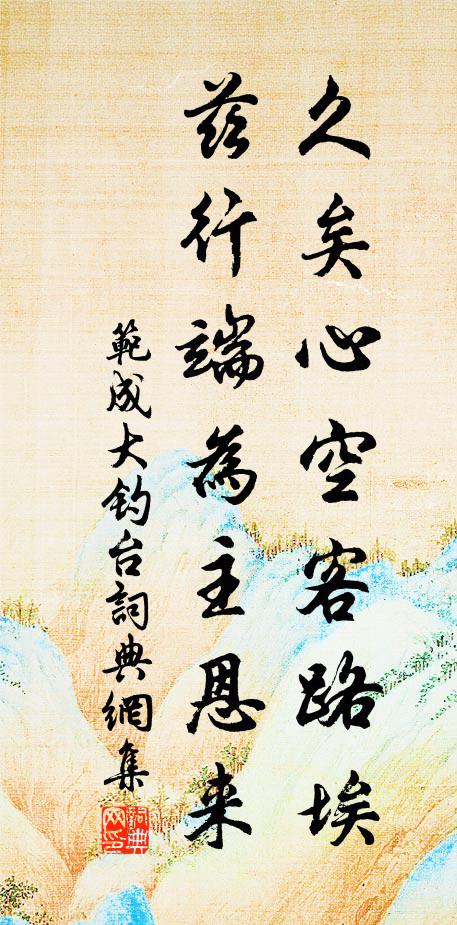 久矣心空客路埃
茲行端為主恩来
範成大钓台詞典網集
詞典